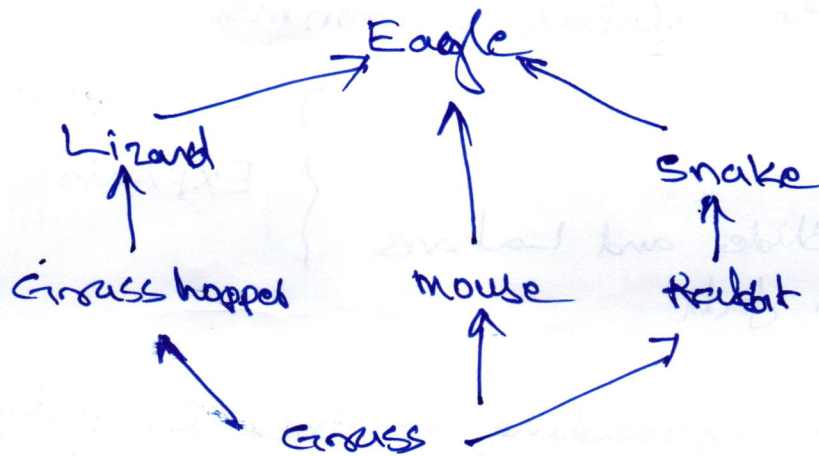 Eagle
Lizard
Snake
Grasshopper mouse Rabbit
Grass